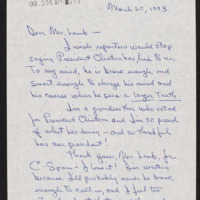 March 25, 1993
Dear Mr. Lamb —
I wish reporters would stop
saying President Clinton has lied to us.
To my mind, he is brave enough and
smart enough to change his mind and
his course when he sees a larger Truth.
I'm a grandmother who voted
for President Clinton and I'm so proud
of what he's doing — and so thankful
he's our president!
Thank you, Mr. Lamb, for
C-Span — I love it! I'm writing
because I'll probably never be brave
enough to call in, and I just too